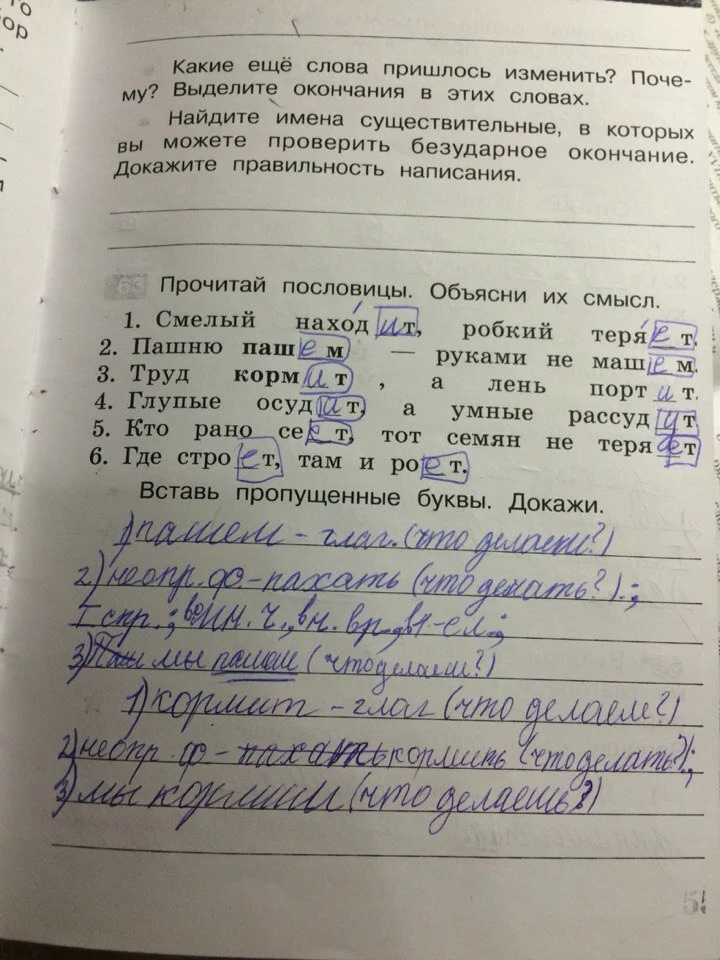 Какие ещё слова пришлось изменить? Поче-
му? Выделите окончания в этих словах.
Найдите имена существительные, в которых
вы можете проверить безударное окончание.
Докажите правильность написания.
Прочитай пословицы. Объясни их смысл.
1. Смелый находит, робкий теряет.
2. Пашню пашем — руками не машем.
3. Труд кормит, а лень портит.
4. Глупые осудят, а умные рассудут
5. Кто рано сеет, тот семян не теряет
6. Где строет, там и роет.
Вставь пропущенные буквы. Докажи.
1) пашем - глаг. (что делаем?)
2) неопр. ф. - пахать (что делать?).;
I спр.; во мн. ч.,
3) мы пашем (что делаем?)
1) кормит - глаг (что делаем?)
2) неопр. ф - пахать кормить (что делать?);
3) мы кормим (что делаешь?)
5